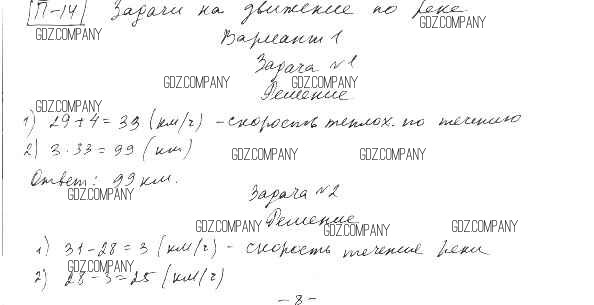 П-14 Задачи на движение по реке
GDZ.COMPANY GDZ.COMPANY
Вариант 1
Задача №1
GDZ.COMPANY GDZ.COMPANY
Решение
GDZ.COMPANY
1) 29+4=33 (км/ч) - скорость теплох. по течению
2) 3·33=99 (км)
GDZ.COMPANY GDZ.COMPANY
Ответ: 99 км.
GDZ.COMPANY
Задача №2
Решение
GDZ.COMPANY GDZ.COMPANY GDZ.COMPANY
1) 31-28=3 (км/ч) - скорость течения реки
GDZ.COMPANY
2) 28-3=25 (км/ч)
- 8 -